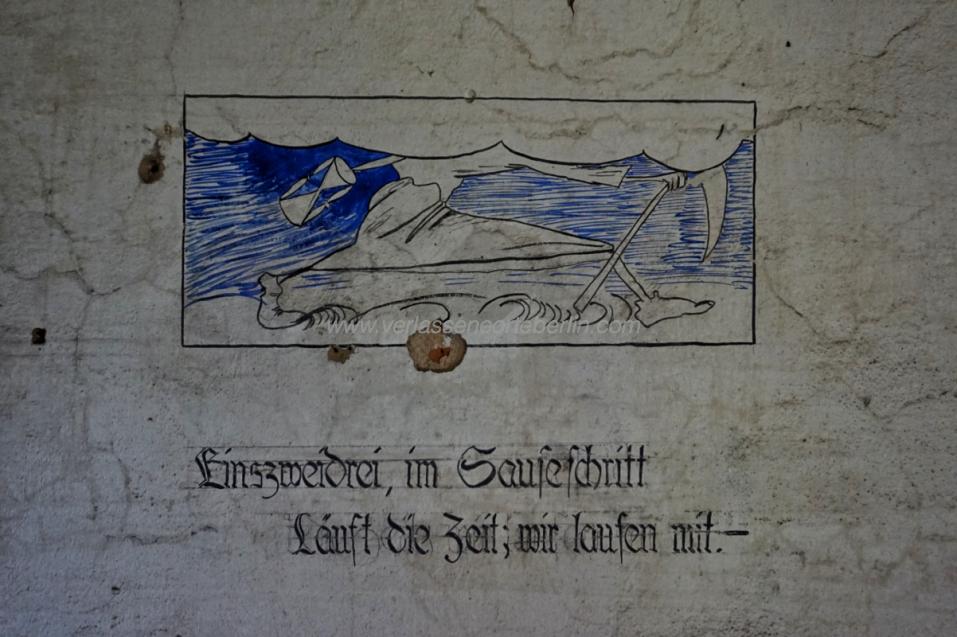 www.verlasseneorteberlin.com
Einszweidrei, im Sauseschritt
Läuft die Zeit; wir laufen mit.–